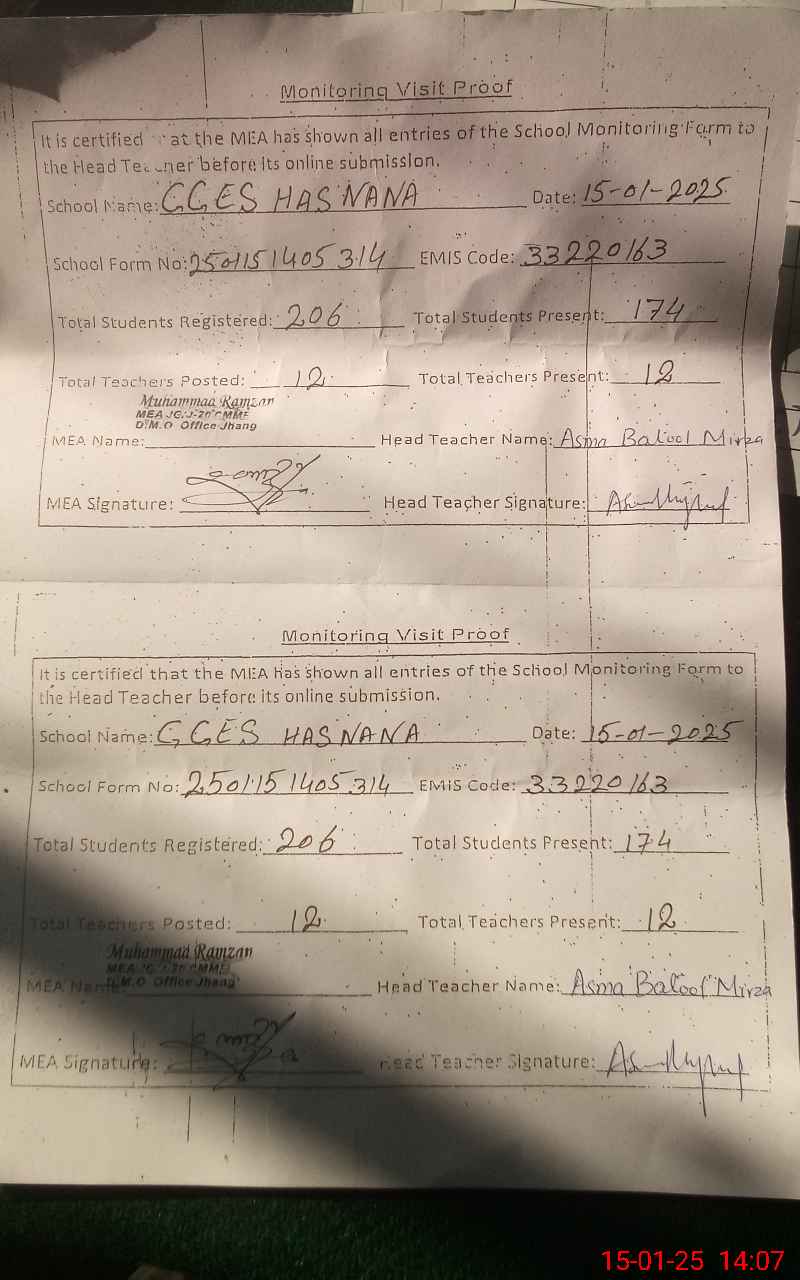 Monitoring Visit Proof
It is certified at the MEA has shown all entries of the School Monitoring Form to
the Head Teacher before its online submission.
School Name: GGES HASNANA Date: 15-01-2025
School Form No: 2501151405314 EMIS Code: 33220163
Total Students Registered: 206 Total Students Present: 174
Total Teachers Posted: 12 Total Teachers Present: 12
Muhammad Ramzan
MEA
D.M.O Office Jhang
MEA Name: Head Teacher Name: Asma Batool Mirza
MEA Signature: Head Teacher Signature:
Monitoring Visit Proof
It is certified that the MEA has shown all entries of the School Monitoring Form to
the Head Teacher before its online submission.
School Name: GGES HASNANA Date: 15-01-2025
School Form No: 2501151405314 EMIS Code: 33220163
Total Students Registered: 206 Total Students Present: 174
Total Teachers Posted: 12 Total Teachers Present: 12
Muhammad Ramzan
MEA
D.M.O Office Jhang
MEA Name: Head Teacher Name: Asma Batool Mirza
MEA Signature: Head Teacher Signature:
15-01-25 14:07